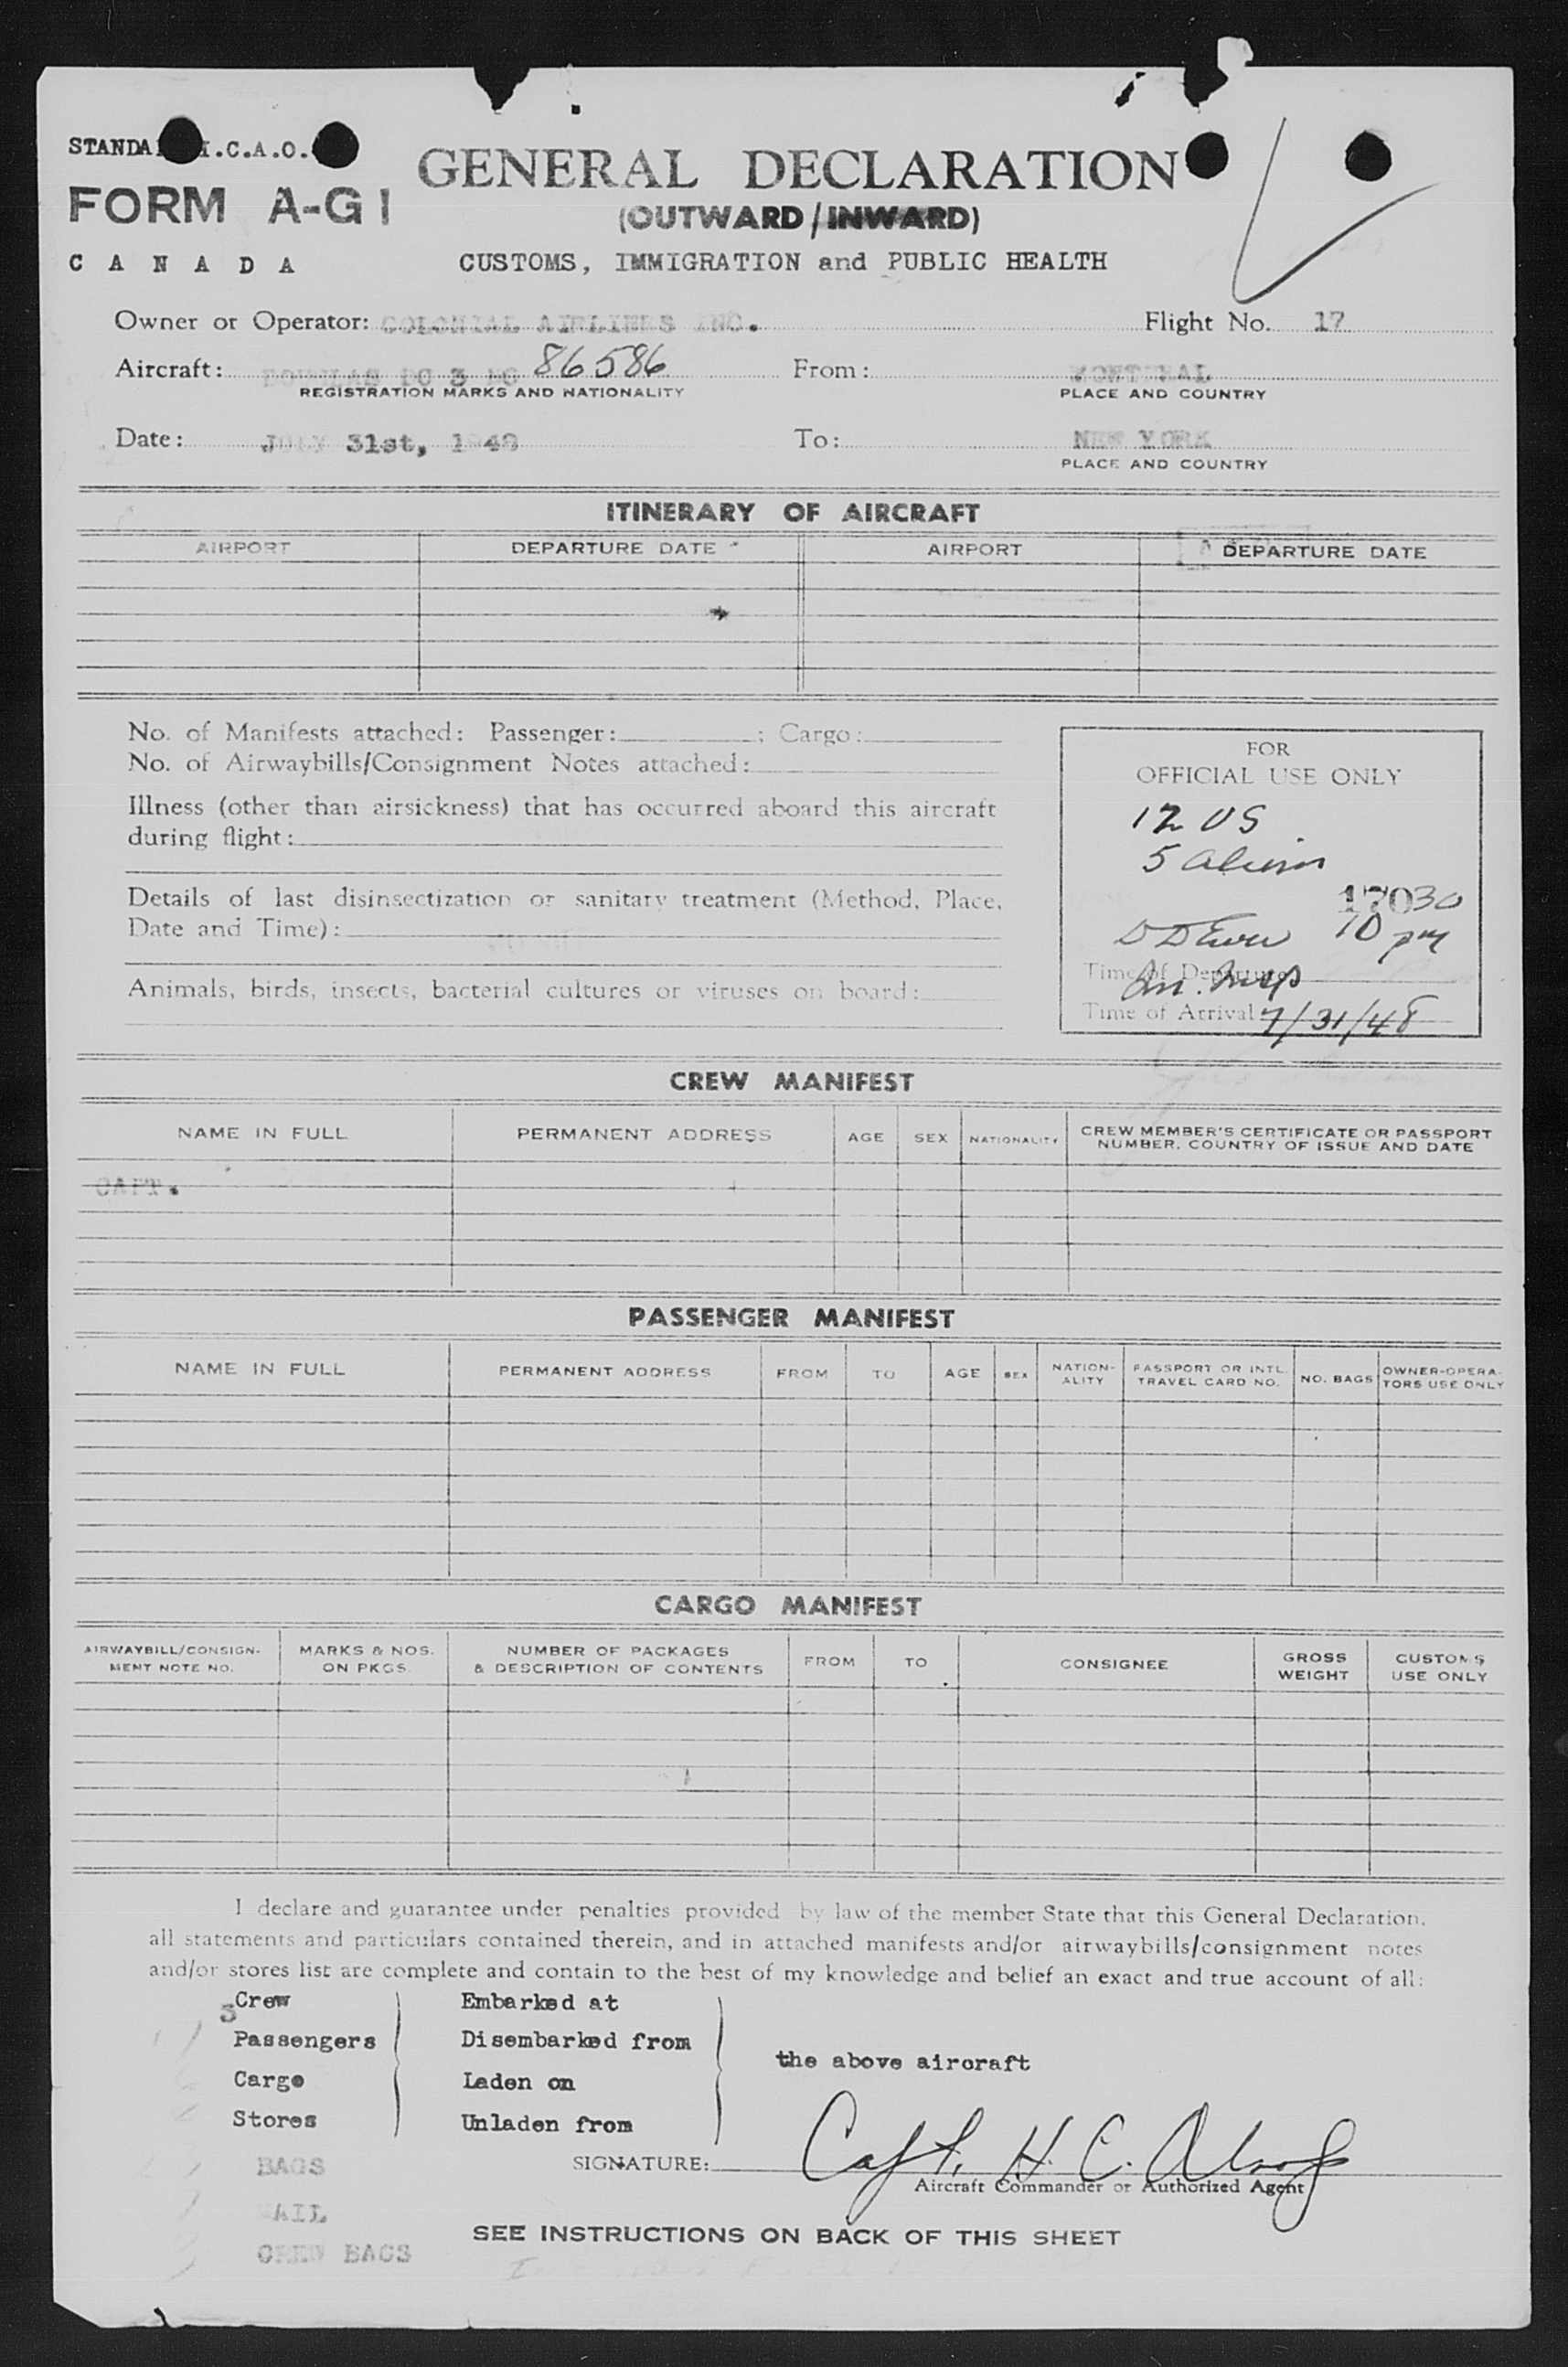 STANDA I.C.A.O.
FORM A-G1
CANADA
GENERAL DECLARATION
(OUTWARD/INWARD)
CUSTOMS, IMMIGRATION and PUBLIC HEALTH
Owner or Operator: COLONIAL AIRLINES INC. Flight No. 17
Aircraft: DOUGLAS DC 3 NC 86586 From: MONTREAL
REGISTRATION MARKS AND NATIONALITY PLACE AND COUNTRY
Date: JULY 31st, 1948 To: NEW YORK
PLACE AND COUNTRY
ITINERARY OF AIRCRAFT
AIRPORT DEPARTURE DATE AIRPORT DEPARTURE DATE
No. of Manifests attached: Passenger: ; Cargo:
No. of Airwaybills/Consignment Notes attached:
Illness (other than airsickness) that has occurred aboard this aircraft
during flight:
Details of last disinsectization or sanitary treatment (Method, Place,
Date and Time):
Animals, birds, insects, bacterial cultures or viruses on board:
FOR
OFFICIAL USE ONLY
12 US
5 aliens
17030
10 pm
Time of Departure
Imm. Insp
Time of Arrival 7/31/48
CREW MANIFEST
NAME IN FULL PERMANENT ADDRESS AGE SEX NATIONALITY CREW MEMBER'S CERTIFICATE OR PASSPORT
NUMBER, COUNTRY OF ISSUE AND DATE
CAPT.
PASSENGER MANIFEST
NAME IN FULL PERMANENT ADDRESS FROM TO AGE SEX NATION- PASSPORT OR INTL. NO. BAGS OWNER-OPERA-
ALITY TRAVEL CARD NO. TORS USE ONLY
CARGO MANIFEST
AIRWAYBILL/CONSIGN- MARKS & NOS. NUMBER OF PACKAGES FROM TO CONSIGNEE GROSS CUSTOMS
MENT NOTE NO. ON PKGS. & DESCRIPTION OF CONTENTS WEIGHT USE ONLY
I declare and guarantee under penalties provided by law of the member State that this General Declaration,
all statements and particulars contained therein, and in attached manifests and/or airwaybills/consignment notes
and/or stores list are complete and contain to the best of my knowledge and belief an exact and true account of all:
3 Crew Embarked at
Passengers Disembarked from
the above aircraft
Cargo Laden on
Stores Unladen from
BAGS
SIGNATURE: Capt. H. C.
Aircraft Commander or Authorized Agent
MAIL
SEE INSTRUCTIONS ON BACK OF THIS SHEET
CREW BAGS